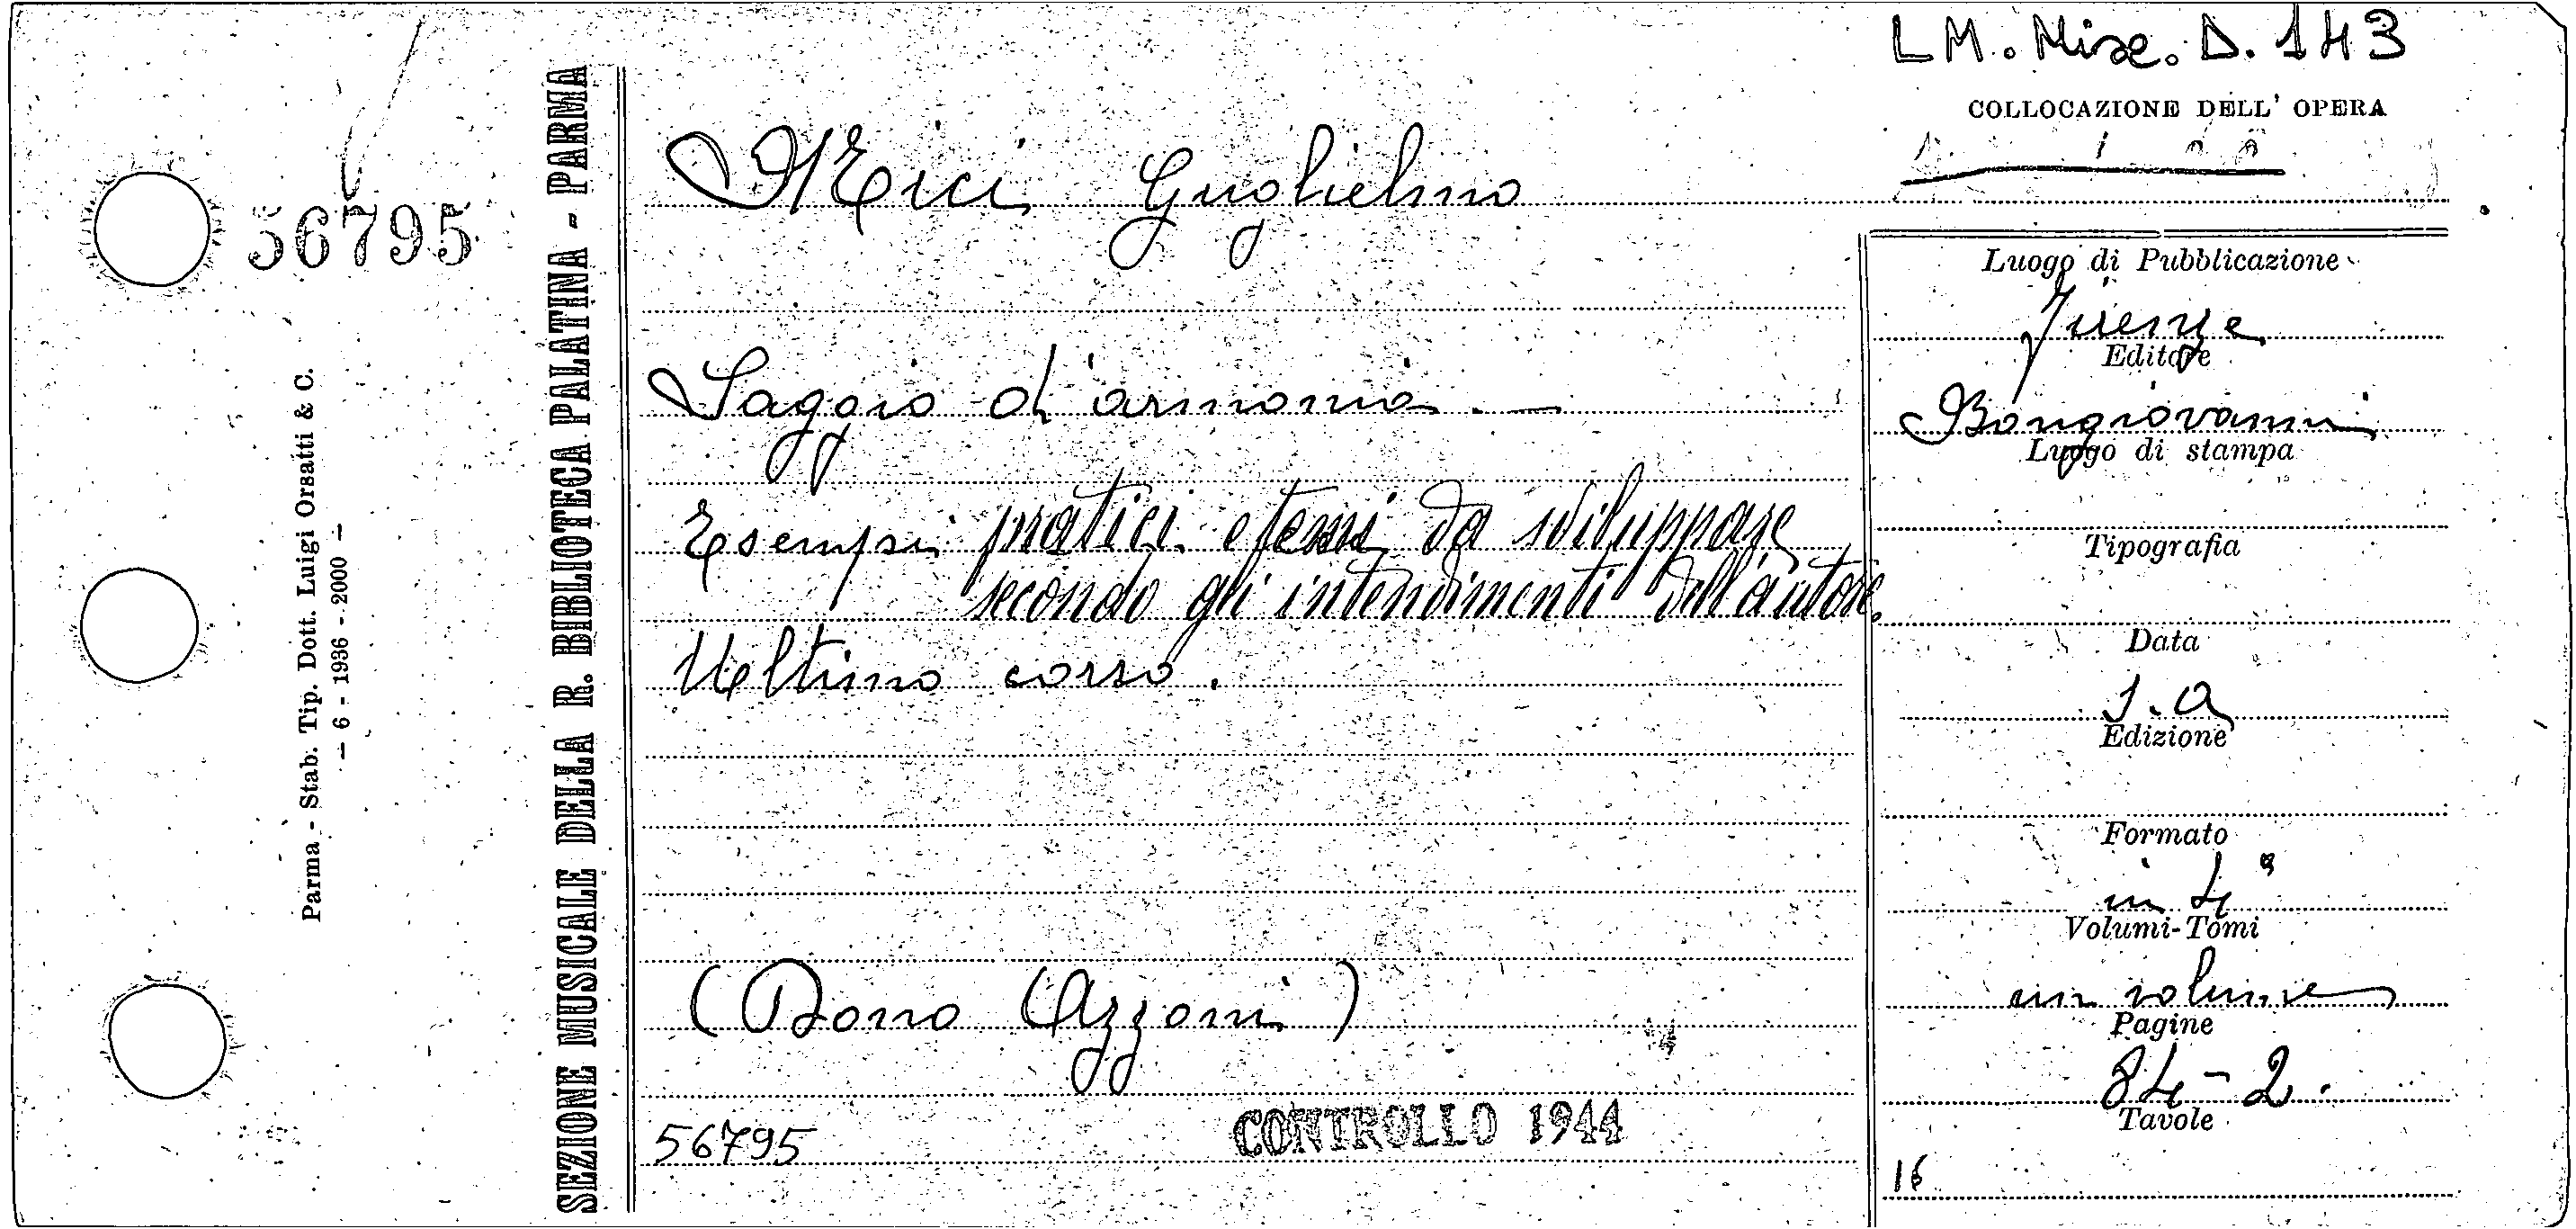 LM. Misc. D. 143
COLLOCAZIONE DELL' OPERA
Guglielmo
56795
Luogo di Pubblicazione
Firenze
Editore
Saggio d'armonia. —
Bongiovanni
Luogo di stampa
Esempi pratici e temi da sviluppare
secondo gli intendimenti dell'autore.
Tipografia
Ultimo corso.
Data
s.a
Edizione
Formato
in 4°
Volumi-Tomi
un volume
(Dono Azzoni)
Pagine
84-2.
Tavole
CONTROLLO 1944
56795
16
SEZIONE MUSICALE DELLA R. BIBLIOTECA PALATINA - PARMA
Parma - Stab. Tip. Dott. Luigi Orsatti & C.
— 6 - 1936 - 2000 —